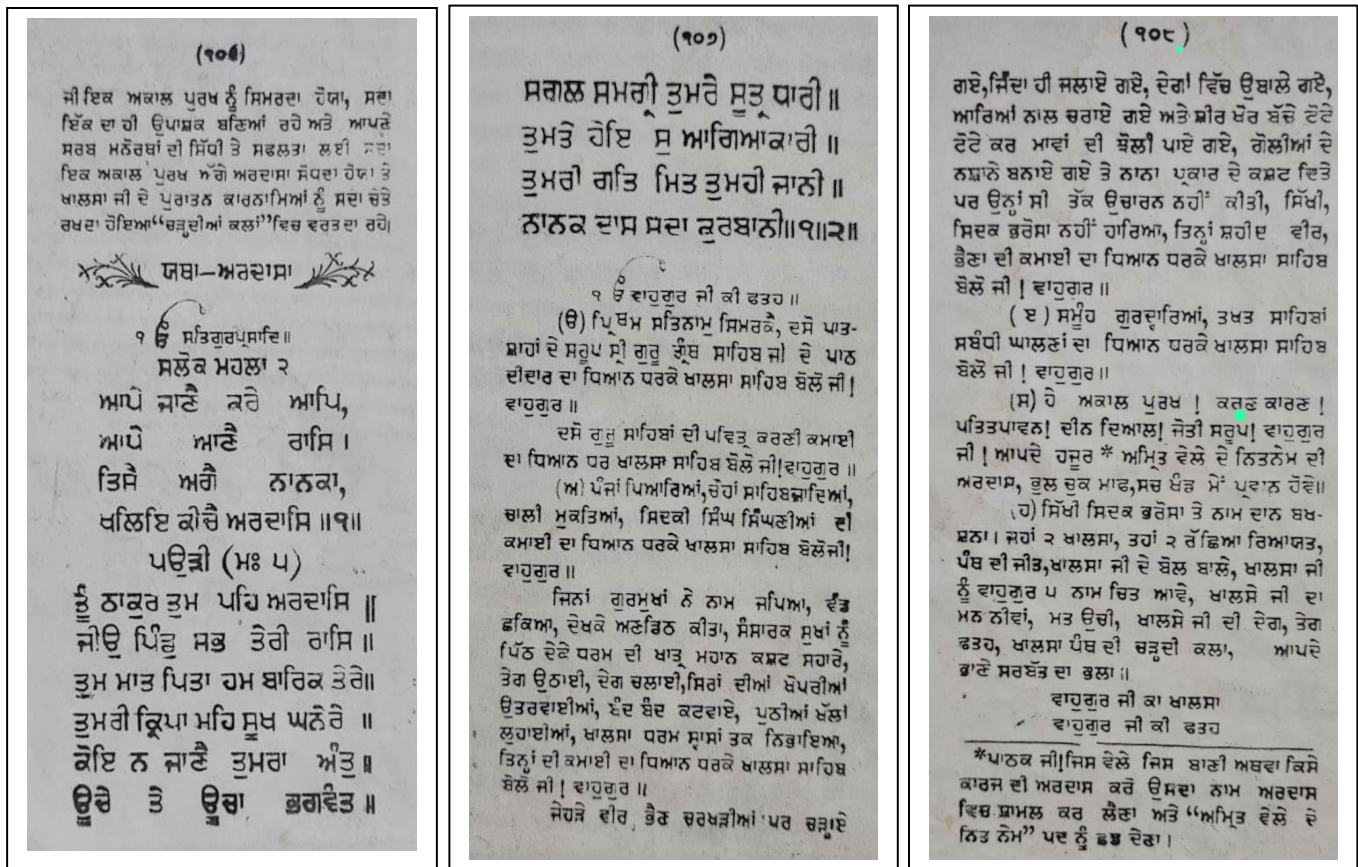 (੧੦੬)
ਜੀ ਇਕ ਅਕਾਲ ਪੁਰਖ ਨੂੰ ਸਿਮਰਦਾ ਹੋਯਾ, ਸਦਾ
ਇੱਕ ਦਾ ਹੀ ਉਪਾਸ਼ਕ ਬਣਿਆਂ ਰਹੇ ਅਤੇ ਆਪਣੇ
ਸਰਬ ਮਨੋਰਥਾਂ ਦੀ ਸਿੱਧੀ ਤੇ ਸਫਲਤਾ ਲਈ ਸਦਾ
ਇਕ ਅਕਾਲ ਪੁਰਖ ਅੱਗੇ ਅਰਦਾਸਾ ਸੋਧਦਾ ਹੋਯਾ ਤੇ
ਖਾਲਸਾ ਜੀ ਦੇ ਪੁਰਾਤਨ ਕਾਰਨਾਮਿਆਂ ਨੂੰ ਸਦਾ ਚੇਤੇ
ਰਖਦਾ ਹੋਇਆ“ਚੜ੍ਹਦੀਆਂ ਕਲਾਂ”ਵਿਚ ਵਰਤਦਾ ਰਹੇ।
ਯਥਾ–ਅਰਦਾਸਾ
੧ ੴ ਸਤਿਗੁਰਪ੍ਰਸਾਦਿ॥
ਸਲੋਕ ਮਹਲਾ ੨
ਆਪੇ ਜਾਣੈ ਕਰੇ ਆਪਿ,
ਆਪੇ ਆਣੈ ਰਾਸਿ।
ਤਿਸੈ ਅਗੈ ਨਾਨਕਾ,
ਖਲਿਇ ਕੀਚੈ ਅਰਦਾਸਿ॥੧॥
ਪਉੜੀ (ਮਃ ੫)
ਤੂੰ ਠਾਕੁਰ ਤੁਮ ਪਹਿ ਅਰਦਾਸਿ॥
ਜੀਉ ਪਿੰਡੁ ਸਭ ਤੇਰੀ ਰਾਸਿ॥
ਤੁਮ ਮਾਤ ਪਿਤਾ ਹਮ ਬਾਰਿਕ ਤੇਰੇ॥
ਤੁਮਰੀ ਕ੍ਰਿਪਾ ਮਹਿ ਸੂਖ ਘਨੇਰੇ॥
ਕੋਇ ਨ ਜਾਣੈ ਤੁਮਰਾ ਅੰਤੁ॥
ਊਚੇ ਤੇ ਊਚਾ ਭਗਵੰਤ॥
(੧੦੭)
ਸਗਲ ਸਮਗ੍ਰੀ ਤੁਮਰੈ ਸੂਤ੍ਰ ਧਾਰੀ॥
ਤੁਮਤੇ ਹੋਇ ਸੁ ਆਗਿਆਕਾਰੀ॥
ਤੁਮਰੀ ਗਤਿ ਮਿਤ ਤੁਮਹੀ ਜਾਨੀ॥
ਨਾਨਕ ਦਾਸ ਸਦਾ ਕੁਰਬਾਨੀ॥੧॥੨॥
੧ ੴ ਵਾਹੁਗੁਰ ਜੀ ਕੀ ਫਤਹ॥
(ੳ) ਪ੍ਰਿਥਮ ਸਤਿਨਾਮੁ ਸਿਮਰਕੈ, ਦਸੋ ਪਾਤ-
ਸ਼ਾਹਾਂ ਦੇ ਸਰੂਪ ਸ੍ਰੀ ਗੁਰੂ ਗ੍ਰੰਥ ਸਾਹਿਬ ਜੀ ਦੇ ਪਾਠ
ਦੀਦਾਰ ਦਾ ਧਿਆਨ ਧਰਕੇ ਖਾਲਸਾ ਸਾਹਿਬ ਬੋਲੋ ਜੀ!
ਵਾਹੁਗੁਰ॥
ਦਸੋ ਗੁਰੂ ਸਾਹਿਬਾਂ ਦੀ ਪਵਿਤ੍ਰ ਕਰਣੀ ਕਮਾਈ
ਦਾ ਧਿਆਨ ਧਰ ਖਾਲਸਾ ਸਾਹਿਬ ਬੋਲੋ ਜੀ!ਵਾਹੁਗੁਰ॥
(ਅ) ਪੰਜਾਂ ਪਿਆਰਿਆਂ,ਚੋਹਾਂ ਸਾਹਿਬਜ਼ਾਦਿਆਂ,
ਚਾਲੀ ਮੁਕਤਿਆਂ, ਸਿਦਕੀ ਸਿੰਘ ਸਿੰਘਣੀਆਂ ਦੀ
ਕਮਾਈ ਦਾ ਧਿਆਨ ਧਰਕੇ ਖਾਲਸਾ ਸਾਹਿਬ ਬੋਲੋਜੀ!
ਵਾਹੁਗੁਰ॥
ਜਿਨਾਂ ਗੁਰਮੁਖਾਂ ਨੇ ਨਾਮ ਜਪਿਆ, ਵੰਡ
ਛਕਿਆ, ਦੇਖਕੇ ਅਣਡਿਠ ਕੀਤਾ, ਸੰਸਾਰਕ ਸੁਖਾਂ ਨੂੰ
ਪਿੱਠ ਦੇਕੇ ਧਰਮ ਦੀ ਖਾਤ੍ਰ ਮਹਾਨ ਕਸ਼ਟ ਸਹਾਰੇ,
ਤੇਗ ਉਠਾਈ, ਦੇਗ ਚਲਾਈ,ਸਿਰਾਂ ਦੀਆਂ ਖੋਪਰੀਆਂ
ਉਤਰਵਾਈਆਂ, ਬੰਦ ਬੰਦ ਕਟਵਾਏ, ਪੁਠੀਆਂ ਖੱਲਾਂ
ਲੁਹਾਈਆਂ, ਖਾਲਸਾ ਧਰਮ ਸ੍ਵਾਸਾਂ ਤਕ ਨਿਭਾਇਆ,
ਤਿਨ੍ਹਾਂ ਦੀ ਕਮਾਈ ਦਾ ਧਿਆਨ ਧਰਕੇ ਖਾਲਸਾ ਸਾਹਿਬ
ਬੋਲੋ ਜੀ! ਵਾਹੁਗੁਰ॥
ਜੇਹੜੇ ਵੀਰ, ਭੈਣ ਚਰਖੜੀਆਂ ਪਰ ਚੜ੍ਹਾਏ
(੧੦੮)
ਗਏ,ਜਿੰਦਾ ਹੀ ਜਲਾਏ ਗਏ, ਦੇਗਾਂ ਵਿੱਚ ਉਬਾਲੇ ਗਏ,
ਆਰਿਆਂ ਨਾਲ ਚਰਾਏ ਗਏ ਅਤੇ ਸ਼ੀਰ ਖੋਰ ਬੱਚੇ ਟੋਟੇ
ਟੋਟੇ ਕਰ ਮਾਵਾਂ ਦੀ ਝੋਲੀ ਪਾਏ ਗਏ, ਗੋਲੀਆਂ ਦੇ
ਨਸ਼ਾਨੇ ਬਨਾਏ ਗਏ ਤੇ ਨਾਨਾ ਪ੍ਰਕਾਰ ਦੇ ਕਸ਼ਟ ਦਿਤੇ
ਪਰ ਉਨ੍ਹਾਂ ਸੀ ਤੱਕ ਉਚਾਰਨ ਨਹੀਂ ਕੀਤੀ, ਸਿੱਖੀ,
ਸਿਦਕ ਭਰੋਸਾ ਨਹੀਂ ਹਾਰਿਆ, ਤਿਨ੍ਹਾਂ ਸ਼ਹੀਦ ਵੀਰ,
ਭੈਣਾ ਦੀ ਕਮਾਈ ਦਾ ਧਿਆਨ ਧਰਕੇ ਖਾਲਸਾ ਸਾਹਿਬ
ਬੋਲੋ ਜੀ! ਵਾਹੁਗੁਰ॥
(ੲ) ਸਮੂੰਹ ਗੁਰਦ੍ਵਾਰਿਆਂ, ਤਖਤ ਸਾਹਿਬਾਂ
ਸਬੰਧੀ ਘਾਲਣਾਂ ਦਾ ਧਿਆਨ ਧਰਕੇ ਖਾਲਸਾ ਸਾਹਿਬ
ਬੋਲੋ ਜੀ! ਵਾਹੁਗੁਰ॥
(ਸ) ਹੇ ਅਕਾਲ ਪੁਰਖ! ਕਰਣ ਕਾਰਣ!
ਪਤਿਤਪਾਵਨ! ਦੀਨ ਦਿਆਲ! ਜੋਤੀ ਸਰੂਪ! ਵਾਹੁਗੁਰ
ਜੀ! ਆਪਦੇ ਹਜੂਰ * ਅਮ੍ਰਿਤ ਵੇਲੇ ਦੇ ਨਿਤਨੇਮ ਦੀ
ਅਰਦਾਸ, ਭੁਲ ਚੁਕ ਮਾਫ,ਸਚ ਖੰਡ ਮੇਂ ਪ੍ਰਵਾਨ ਹੋਵੇ॥
(ਹ) ਸਿੱਖੀ ਸਿਦਕ ਭਰੋਸਾ ਤੇ ਨਾਮ ਦਾਨ ਬਖ-
ਸ਼ਨਾ। ਜਹਾਂ ੨ ਖਾਲਸਾ, ਤਹਾਂ ੨ ਰੱਛਿਆ ਰਿਆਯਤ,
ਪੰਥ ਦੀ ਜੀਤ,ਖਾਲਸਾ ਜੀ ਦੇ ਬੋਲ ਬਾਲੇ, ਖਾਲਸਾ ਜੀ
ਨੂੰ ਵਾਹੁਗੁਰ ੫ ਨਾਮ ਚਿਤ ਆਵੇ, ਖਾਲਸੇ ਜੀ ਦਾ
ਮਨ ਨੀਵਾਂ, ਮਤ ਉਚੀ, ਖਾਲਸੇ ਜੀ ਦੀ ਦੇਗ, ਤੇਗ
ਫਤਹ, ਖਾਲਸਾ ਪੰਥ ਦੀ ਚੜ੍ਹਦੀ ਕਲਾ, ਆਪਦੇ
ਭਾਣੇ ਸਰਬੱਤ ਦਾ ਭਲਾ॥
ਵਾਹੁਗੁਰ ਜੀ ਕਾ ਖਾਲਸਾ
ਵਾਹੁਗੁਰ ਜੀ ਕੀ ਫਤਹ
*ਪਾਠਕ ਜੀ!ਜਿਸ ਵੇਲੇ ਜਿਸ ਬਾਣੀ ਅਥਵਾ ਕਿਸੇ
ਕਾਰਜ ਦੀ ਅਰਦਾਸ ਕਰੋ ਉਸਦਾ ਨਾਮ ਅਰਦਾਸ
ਵਿਚ ਸ਼ਾਮਲ ਕਰ ਲੈਣਾ ਅਤੇ “ਅਮ੍ਰਿਤ ਵੇਲੇ ਦੇ
ਨਿਤ ਨੇਮ” ਪਦ ਨੂੰ ਛਡ ਦੇਣਾ।